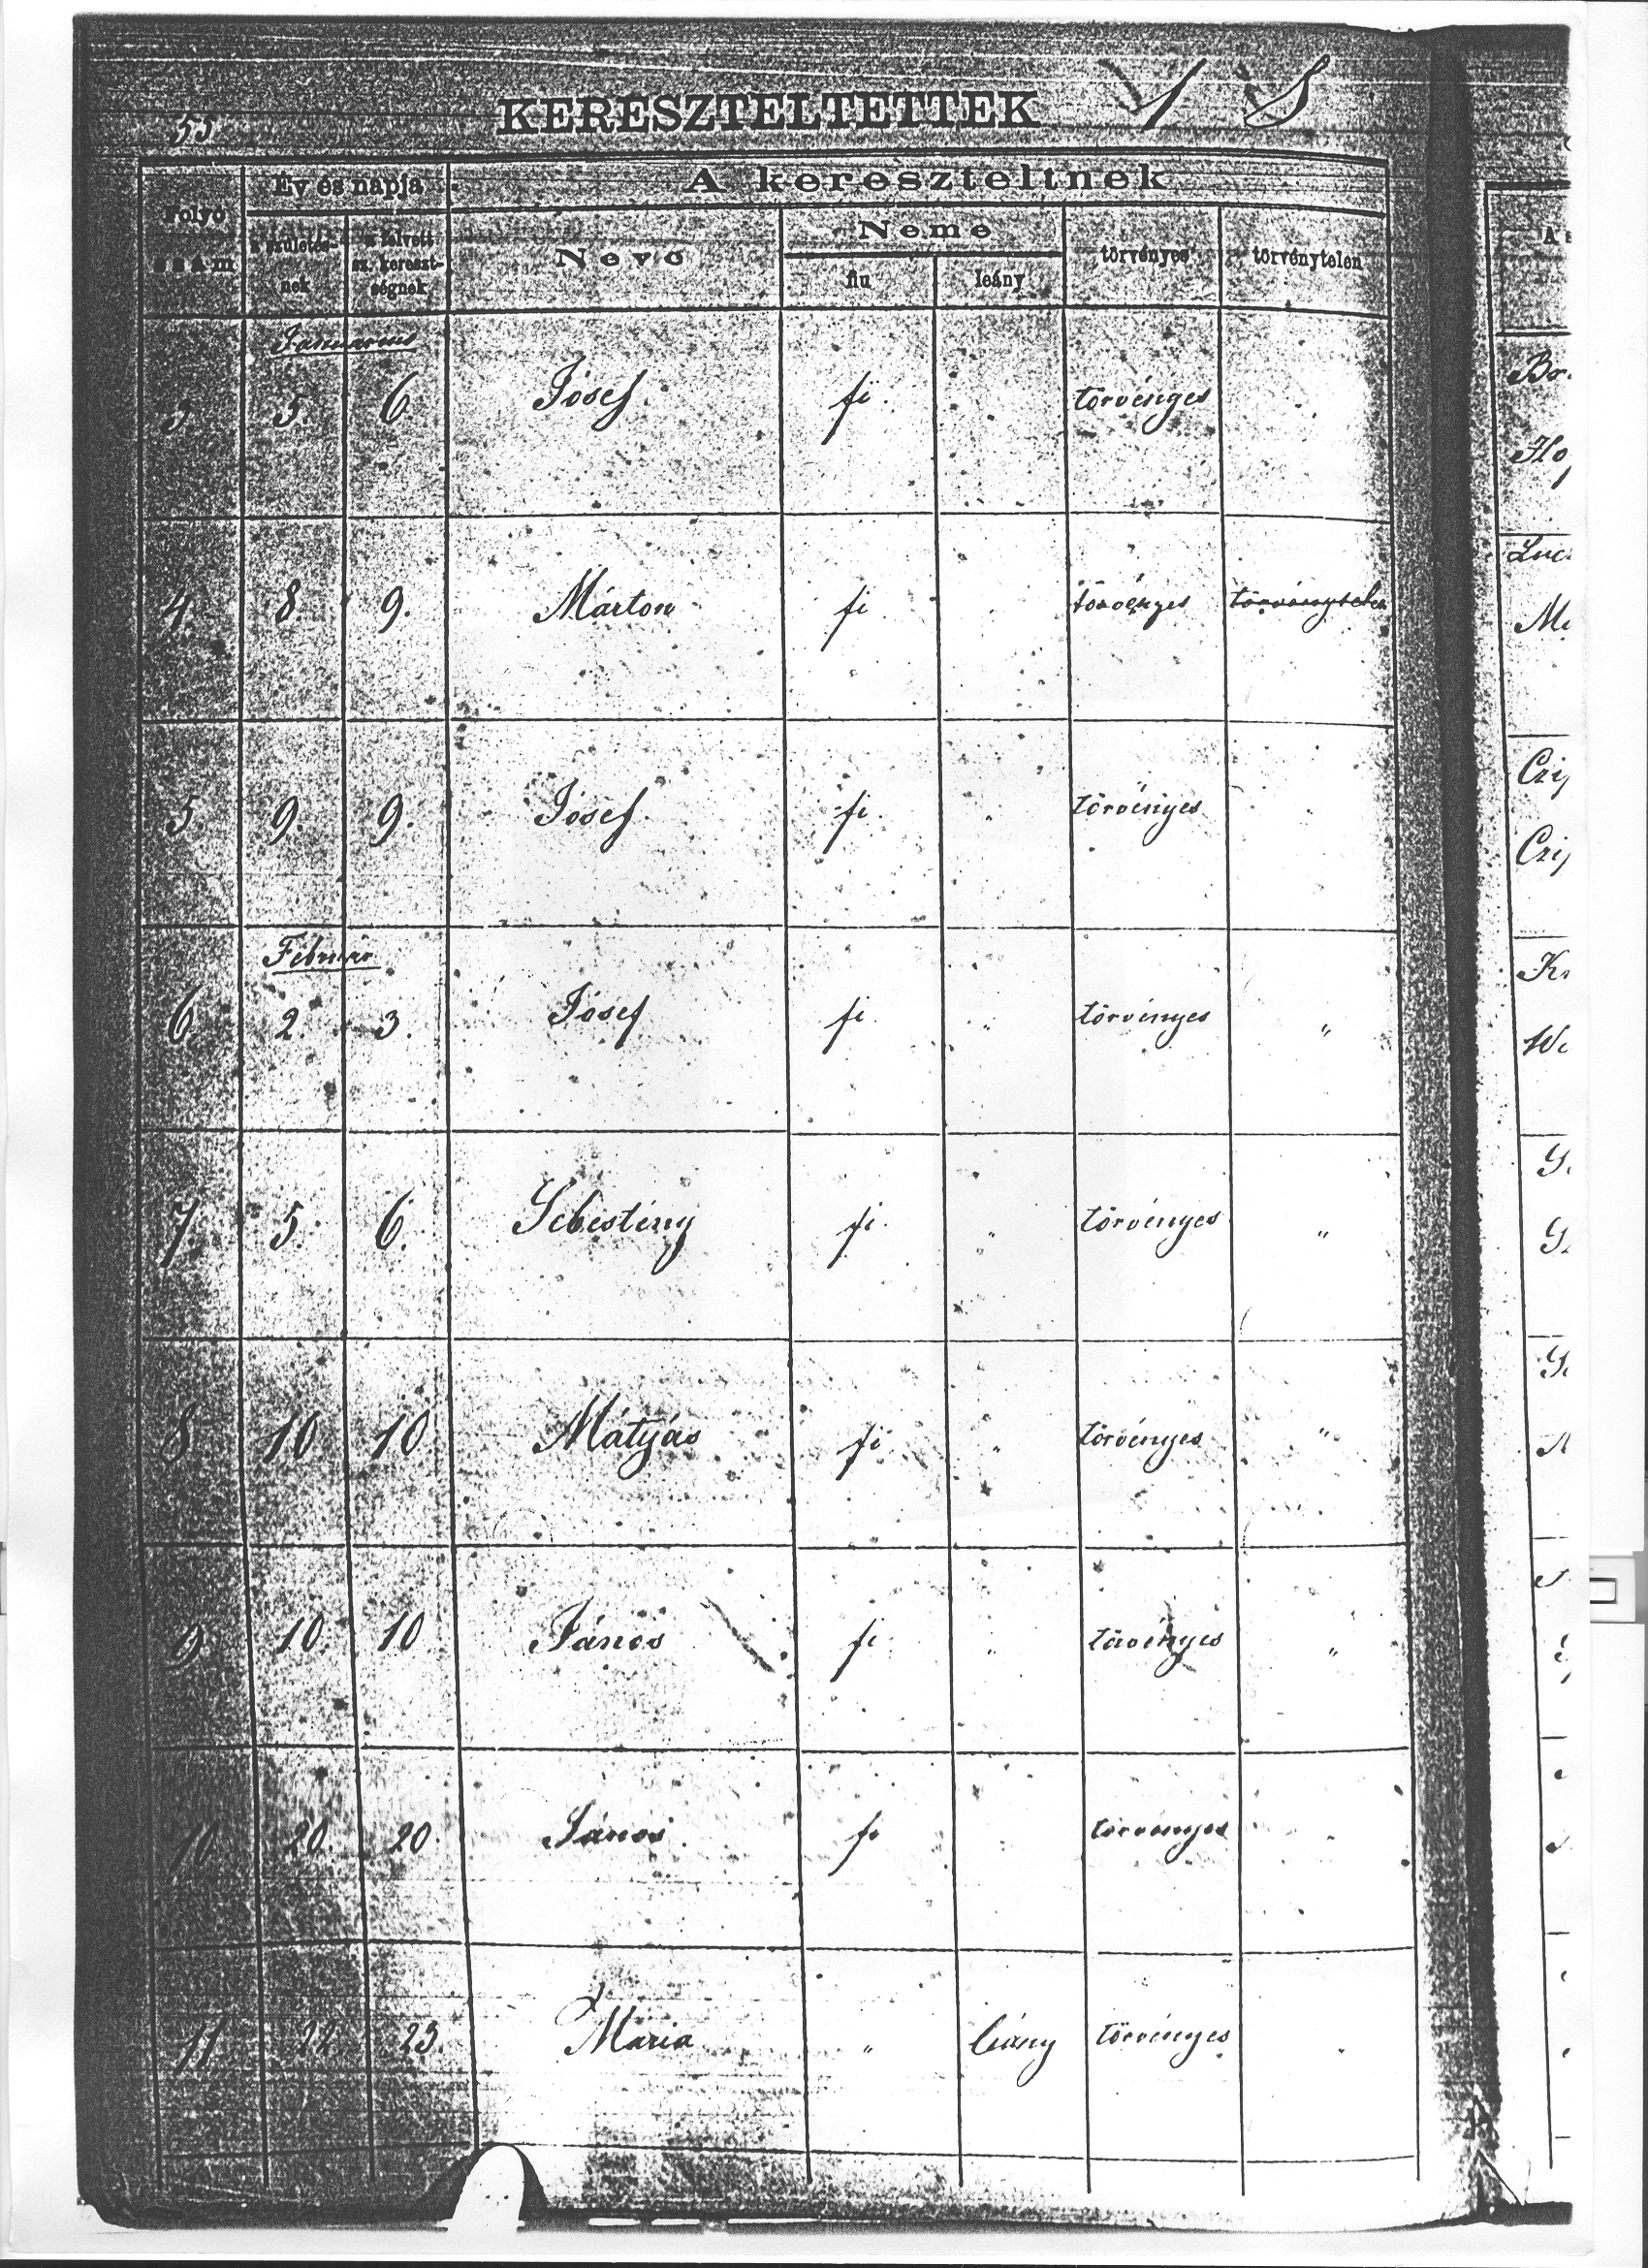 55
KERESZTELTETTEK 1 8
Év és napja
A kereszteltnek
Folyó szám
a születésnek
a felvett sz. keresztségnek
Neve
Neme
fiu
leány
törvényes
törvénytelen
Januarius
3 5. 6. Jósef fi törvényes
4. 8. 9. Márton fi törvényes törvénytelen
5 9. 9. Jósef fi. " törvényes
Februar
6. 2. 3. Jósef fi. " törvényes "
7. 5. 6. Sebestény fi. " törvényes "
8 10 10 Mátyás fi. " törvényes "
9. 10. 10 János fi. " törvényes "
10 20. 20. János fi törvényes "
11 22 23. Mária " leány törvényes "
Czi
Czi